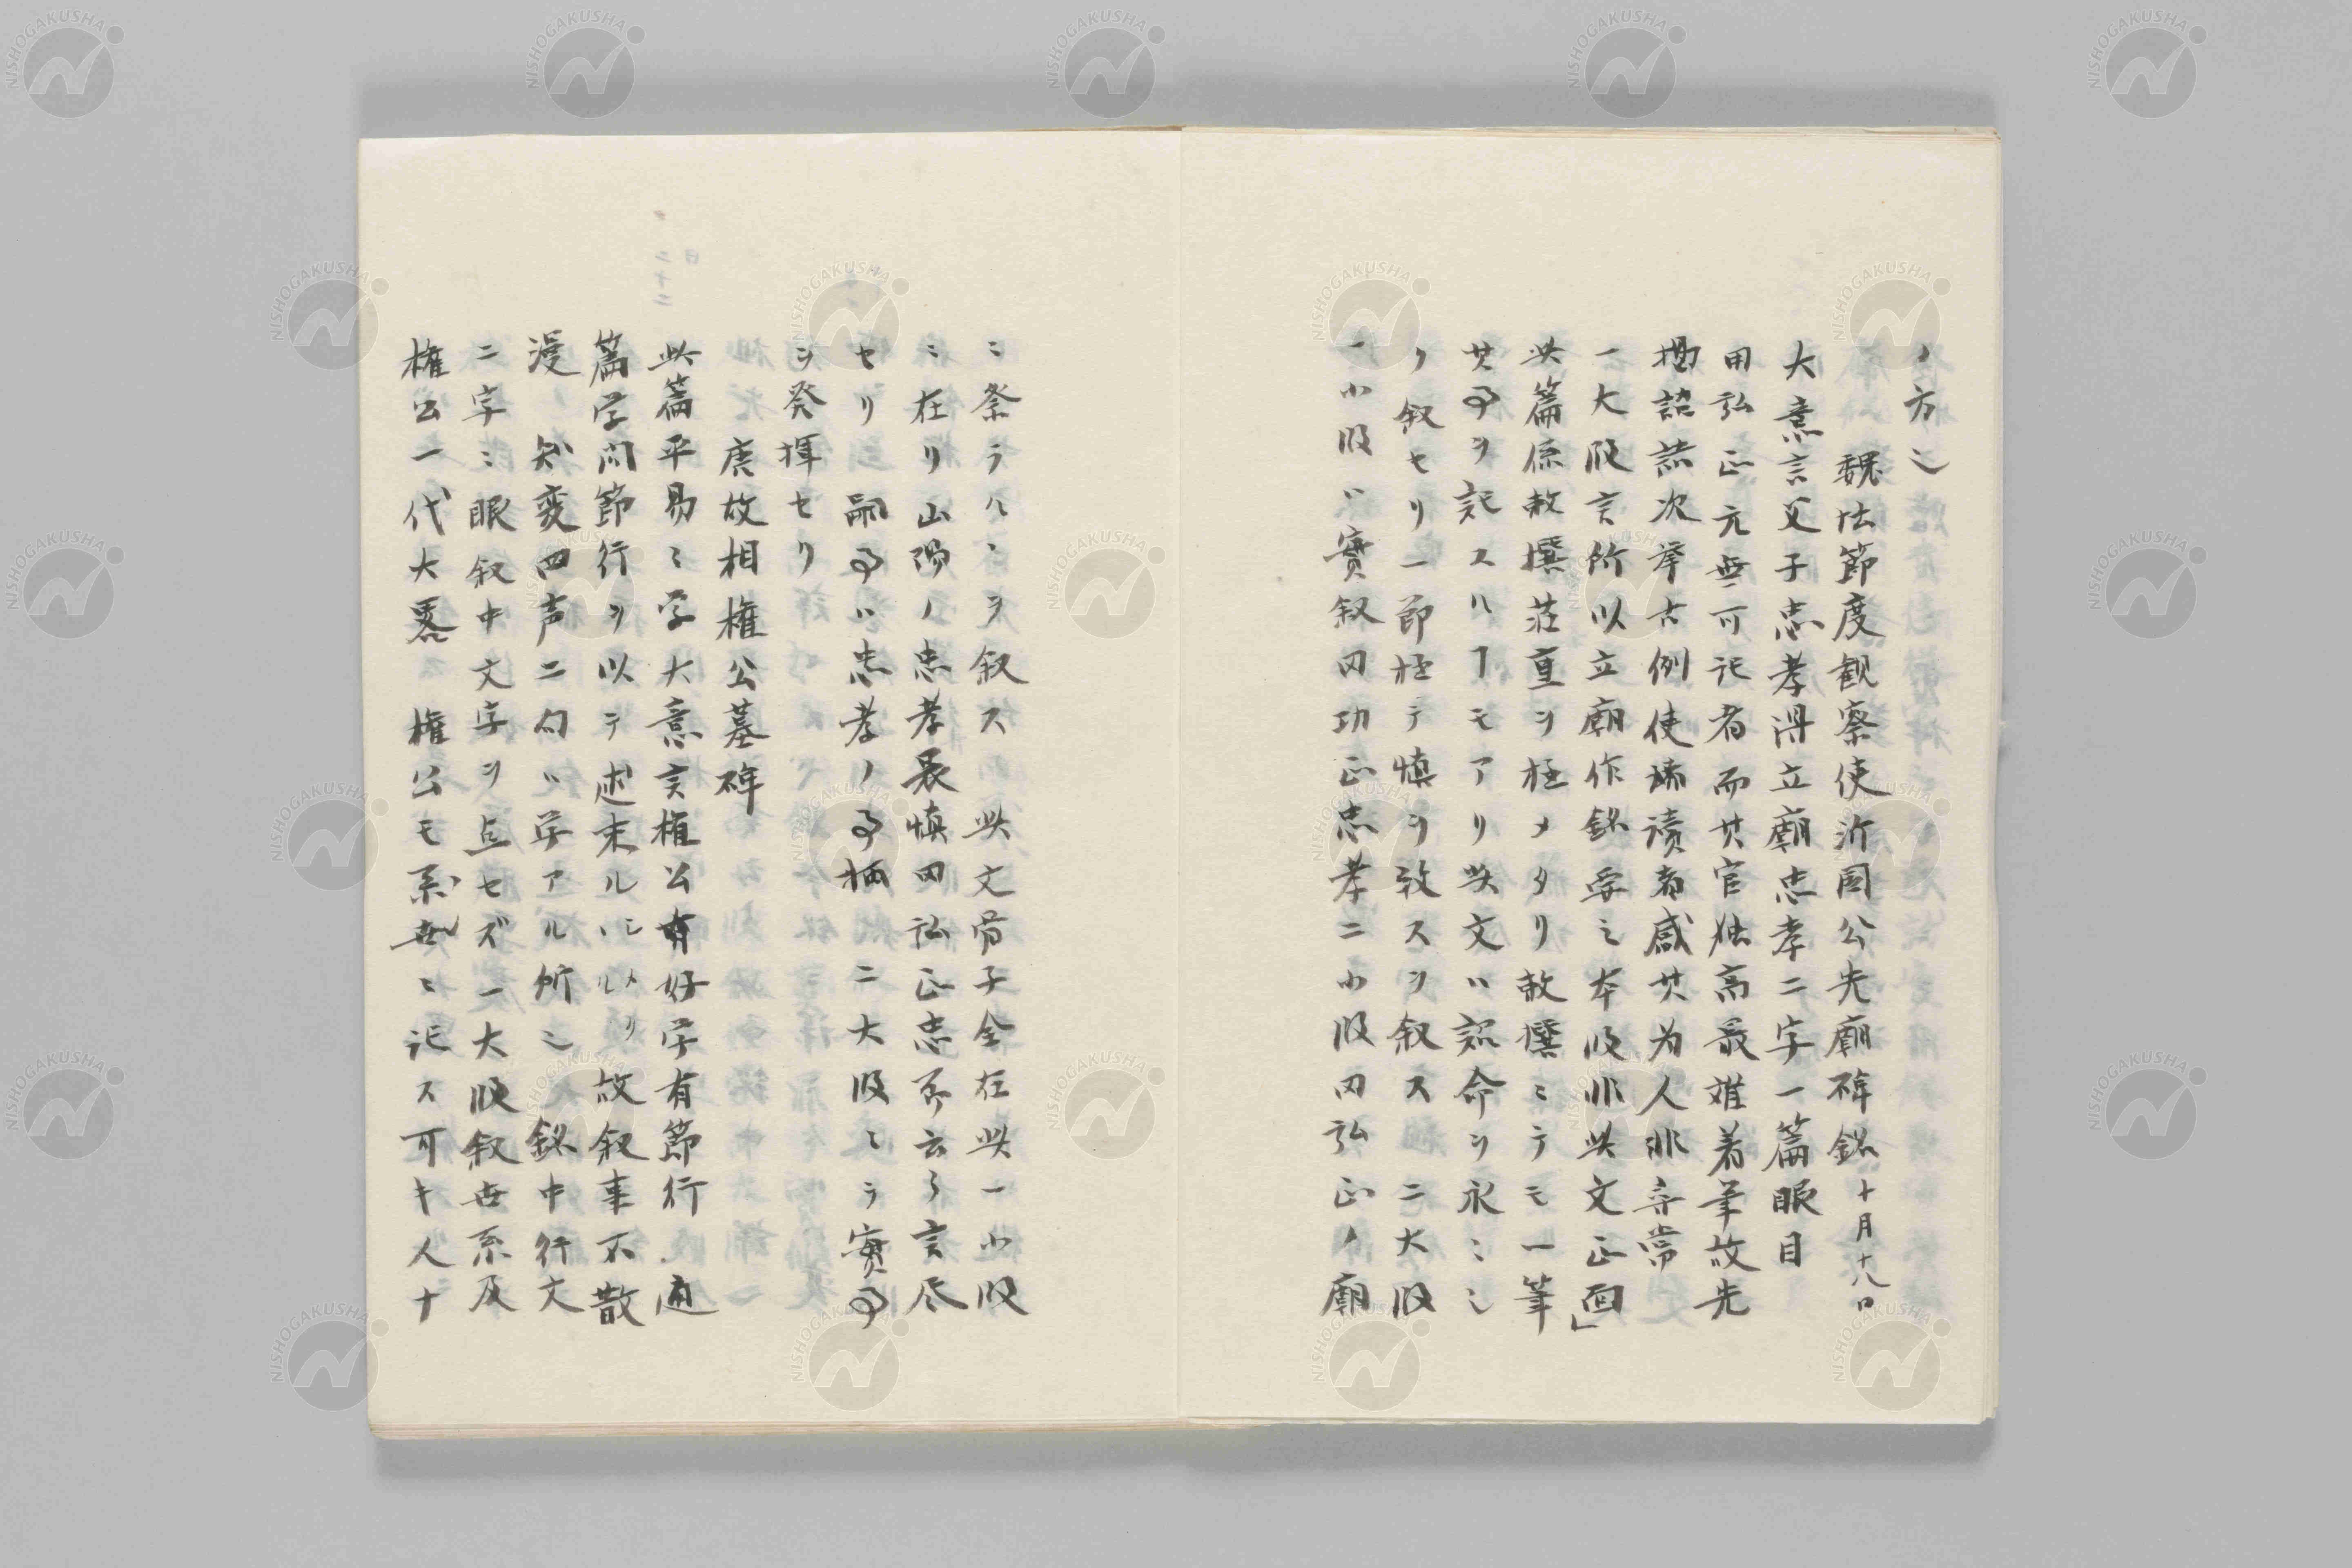 ノ方也
魏博節度観察使沂国公先廟碑銘十月十八日
大意言父子忠孝得立廟忠孝二字一篇眼目
田弘正元無可記者而其官独高最難着筆故先
掲詔誥次挙古例使読者感其為人非尋常
一大段言所以立廟作銘要之本段非此文正面」
此篇原敕撰荘重ヲ極メタリ敕撰ニテモ一筆
其事ヲ記スルヿモアリ此文ハ詔命ヲ承ニシ
ノ叙セリ一節極テ慎ヲ致スヲ叙ス二大段
一小段ハ實叙田功正忠孝二小段田弘正ノ廟
ニ祭ラルヽヲ叙ス此文骨子全在此一小段
ニ在リ山陽ノ忠孝畏慎田弘正忠孝云々言尽
セリ嗣事ハ忠孝ノ事柄二大段ニテ實事
ヲ発揮セリ
唐故相権公墓碑
此篇平易ニ学大意言権公有好学有節行通
篇学問節行ヲ以テ述末ルシハルメリ故叙事不散
漫知変四声二句ハ学アル所也銘中行文
二字ニ眼叙中文字ヲ点セズ一大段叙世系及
権公一代大畧権公モ系世ニ記ス可キ人ナ
日
二十二
NISHOGAKUSHA